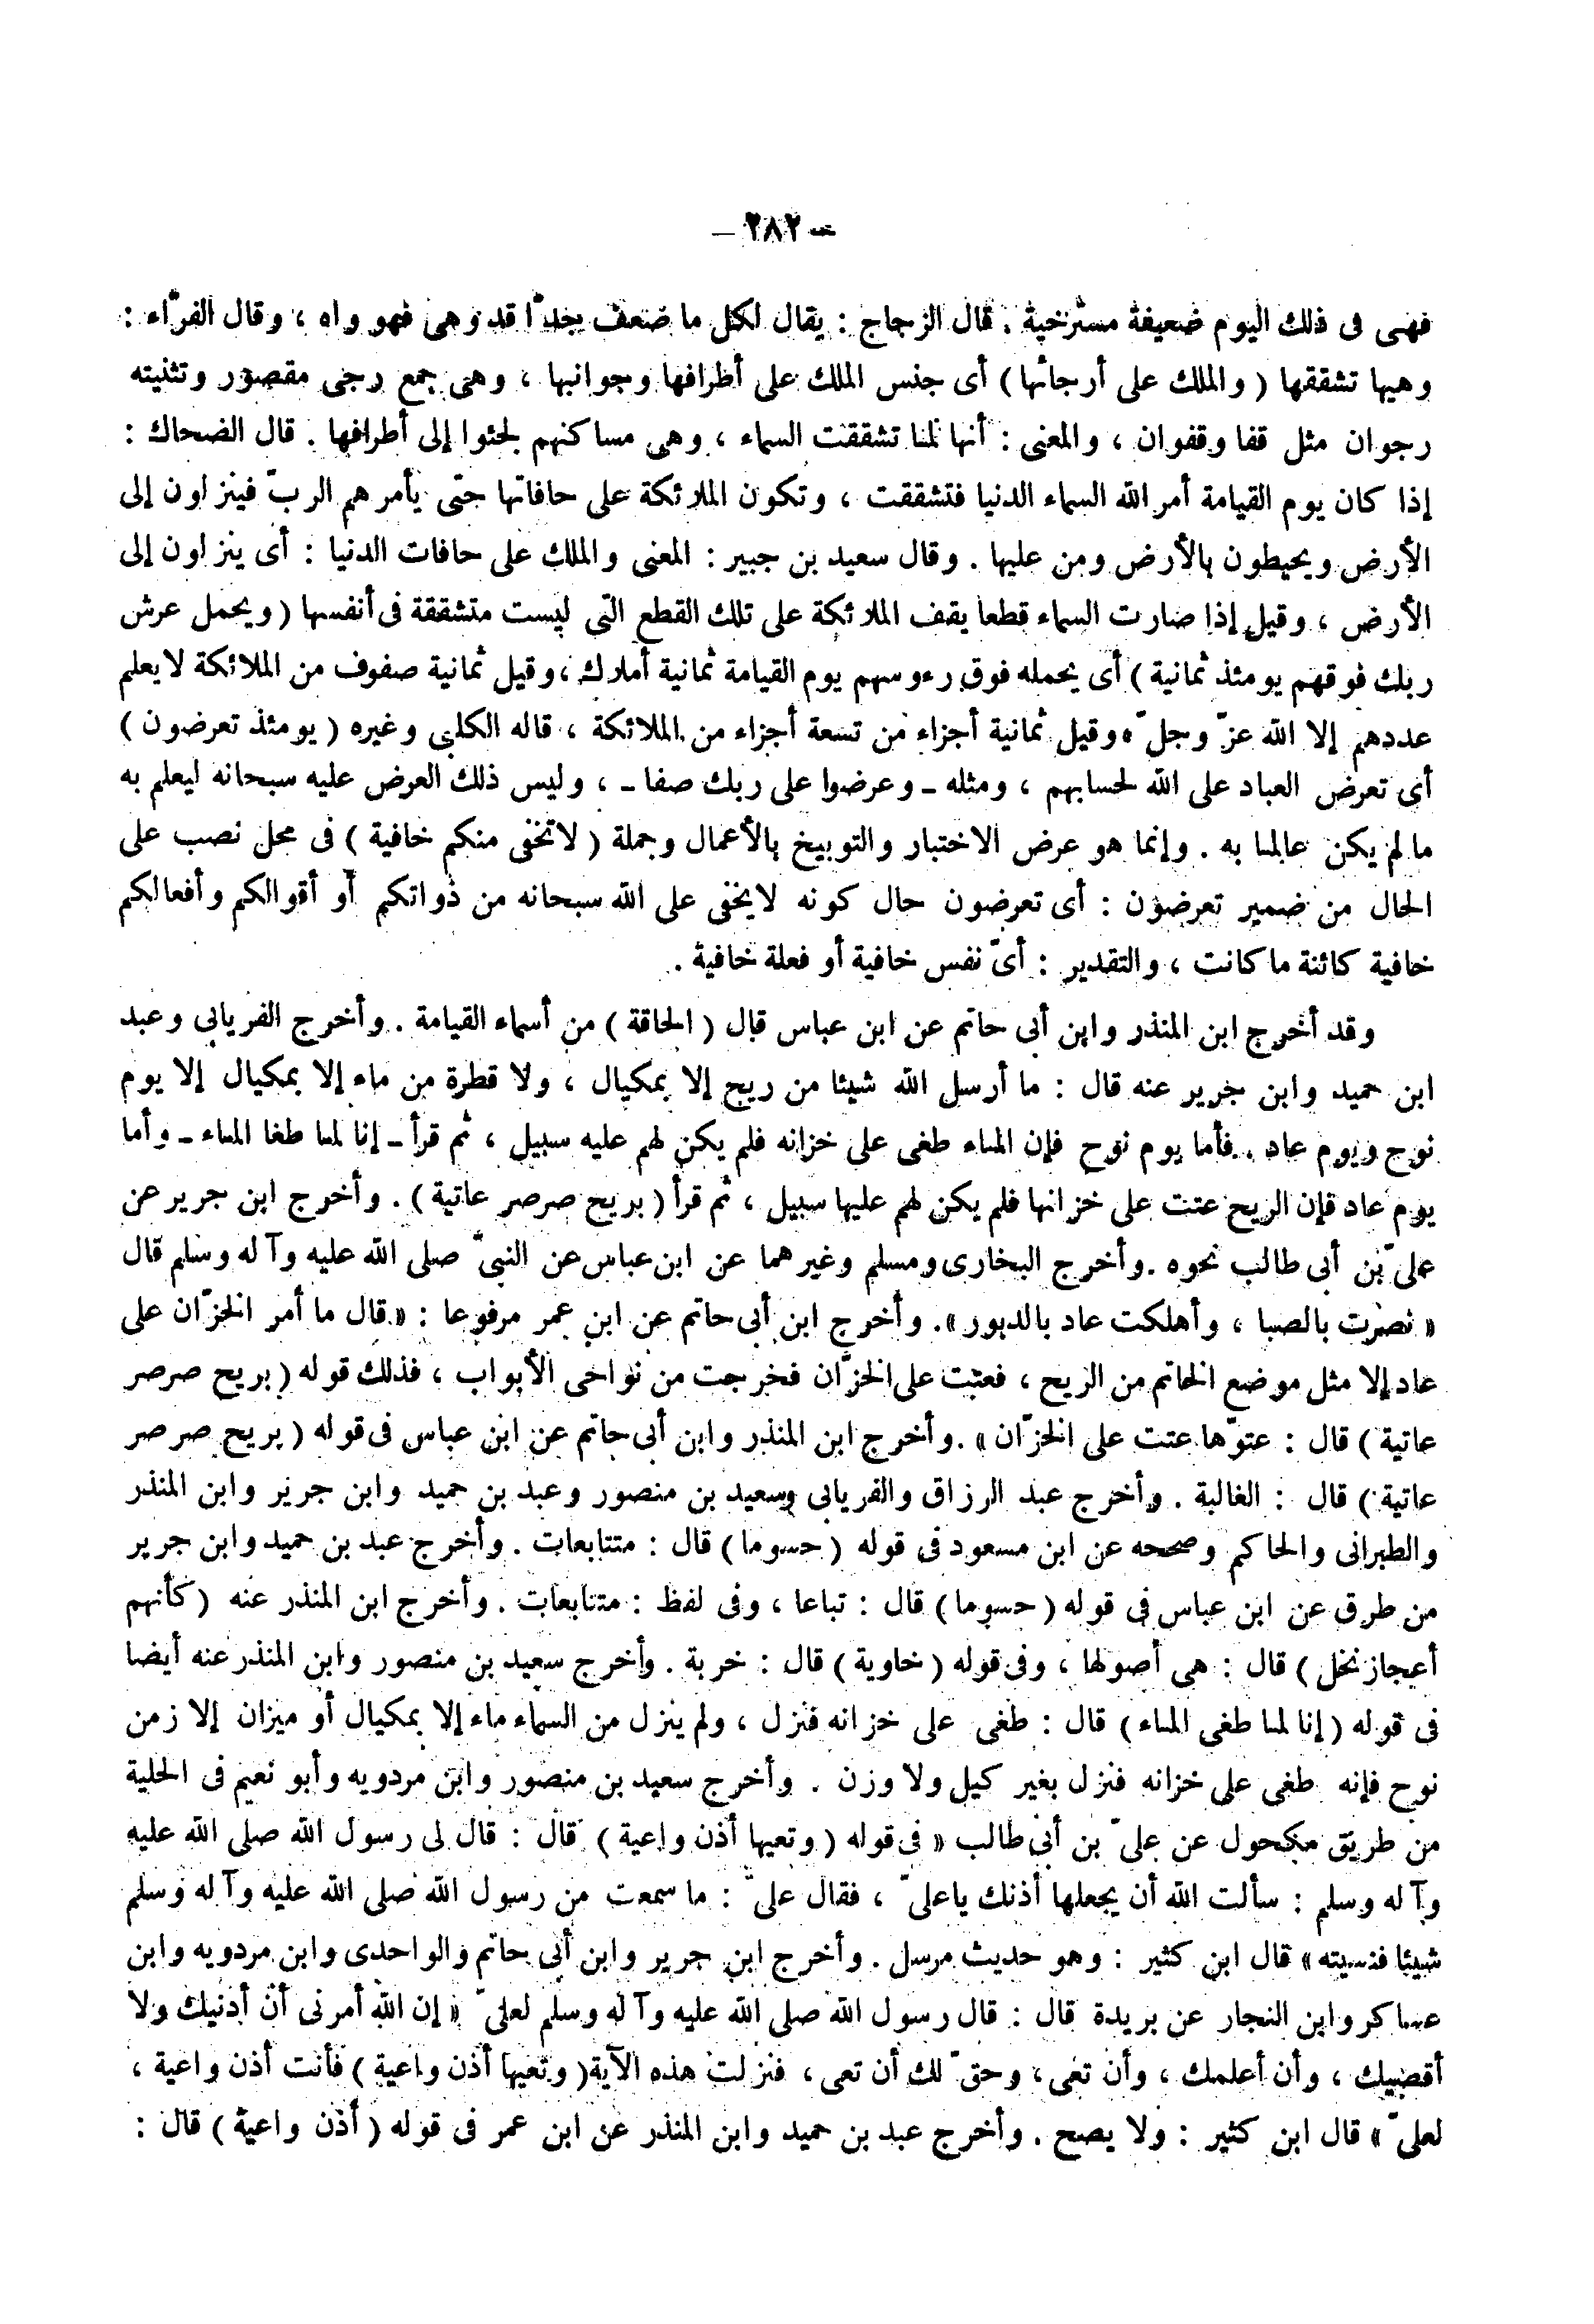 - ٢٨٢ -
فهى فى ذلك اليوم ضعيفة مسترخية . قال الزجاج : يقال لكل ما ضعف جدّا قد وهى فهو واه ، وقال الفرّاء :
وهيها تشققها ( والملك على أرجائها ) أى جنس الملك على أطرافها وجوانبها ، وهى جمع رجى مقصور وتثنيته
رجوان مثل قفا وقفوان ، والمعنى : أنها لما تشققت السماء ، وهى مساكنهم لجئوا إلى أطرافها . قال الضحاك :
إذا كان يوم القيامة أمر الله السماء الدنيا فتشققت ، وتكون الملائكة على حافاتها حتى يأمرهم الربّ فينزلون إلى
الأرض ويحيطون بالأرض ومن عليها . وقال سعيد بن جبير : المعنى والملك على حافات الدنيا : أى ينزلون إلى
الأرض ، وقيل إذا صارت السماء قطعا يقف الملائكة على تلك القطع التى ليست متشققة فى أنفسها ( ويحمل عرش
ربك فوقهم يومئذ ثمانية ) أى يحمله فوق رءوسهم يوم القيامة ثمانية أملاك ، وقيل ثمانية صفوف من الملائكة لا يعلم
عددهم إلا الله عزّ وجلّ ، وقيل ثمانية أجزاء من تسعة أجزاء من الملائكة ، قاله الكلبى وغيره ( يومئذ تعرضون )
أى تعرض العباد على الله لحسابهم ، ومثله - وعرضوا على ربك صفا - ، وليس ذلك العرض عليه سبحانه ليعلم به
ما لم يكن عالما به . وإنما هو عرض الاختبار والتوبيخ بالأعمال وجملة ( لاتخفى منكم خافية ) فى محل نصب على
الحال من ضمير تعرضون : أى تعرضون حال كونه لايخفى على الله سبحانه من ذواتكم أو أقوالكم وأفعالكم
خافية كائنة ما كانت ، والتقدير : أىّ نفس خافية أو فعلة خافية .
وقد أخرج ابن المنذر وابن أبى حاتم عن ابن عباس قال ( الحاقة ) من أسماء القيامة . وأخرج الفريابى وعبد
ابن حميد وابن جرير عنه قال : ما أرسل الله شيئا من ريح إلا بمكيال ، ولا قطرة من ماء إلا بمكيال إلا يوم
نوح ويوم عاد . فأما يوم نوح فإن الماء طغى على خزانه فلم يكن لهم عليه سبيل ، ثم قرأ - إنا لما طغا الماء - وأما
يوم عاد فإن الريح عتت على خزانها فلم يكن لهم عليها سبيل ، ثم قرأ ( بريح صرصر عاتية ) . وأخرج ابن جرير عن
علىّ بن أبى طالب نحوه . وأخرج البخارى ومسلم وغيرهما عن ابن عباس عن النبىّ صلى الله عليه وآله وسلم قال
« نصرت بالصبا ، وأهلكت عاد بالدبور » . وأخرج ابن أبى حاتم عن ابن عمر مرفوعا : « قال ما أمر الخزّان على
عاد إلا مثل موضع الخاتم من الريح ، فعتت على الخزّان فخرجت من نواحى الأبواب ، فذلك قوله ( بريح صرصر
عاتية ) قال : عتوّها عتت على الخزّان » . وأخرج ابن المنذر وابن أبى حاتم عن ابن عباس فى قوله ( بريح صرصر
عاتية ) قال : الغالبة . وأخرج عبد الرزاق والفريابى وسعيد بن منصور وعبد بن حميد وابن جرير وابن المنذر
والطبرانى والحاكم وصححه عن ابن مسعود فى قوله ( حسوما ) قال : متتابعات . وأخرج عبد بن حميد وابن جرير
من طرق عن ابن عباس فى قوله ( حسوما ) قال : تباعا ، وفى لفظ : متتابعات . وأخرج ابن المنذر عنه ( كأنهم
أعجاز نخل ) قال : هى أصولها ، وفى قوله ( خاوية ) قال : خربة . وأخرج سعيد بن منصور وابن المنذر عنه أيضا
فى قوله ( إنا لما طغى الماء ) قال : طغى على خزانه فنزل ، ولم ينزل من السماء ماء إلا بمكيال أو ميزان إلا زمن
نوح فإنه طغى على خزانه فنزل بغير كيل ولا وزن . وأخرج سعيد بن منصور وابن مردويه وأبو نعيم فى الحلية
من طريق مكحول عن علىّ بن أبى طالب « فى قوله ( وتعيها أذن واعية ) قال : قال لى رسول الله صلى الله عليه
وآله وسلم : سألت الله أن يجعلها أذنك ياعلىّ ، فقال علىّ : ما سمعت من رسول الله صلى الله عليه وآله وسلم
شيئا فنسيته » قال ابن كثير : وهو حديث مرسل . وأخرج ابن جرير وابن أبى حاتم والواحدى وابن مردويه وابن
عساكر وابن النجار عن بريدة قال : قال رسول الله صلى الله عليه وآله وسلم لعلىّ « إن الله أمرنى أن أدنيك ولا
أقصيك ، وأن أعلمك ، وأن تعى ، وحقّ لك أن تعى ، فنزلت هذه الآية ( وتعيها أذن واعية ) فأنت أذن واعية ،
لعلىّ » قال ابن كثير : ولا يصح . وأخرج عبد بن حميد وابن المنذر عن ابن عمر فى قوله ( أذن واعية ) قال :